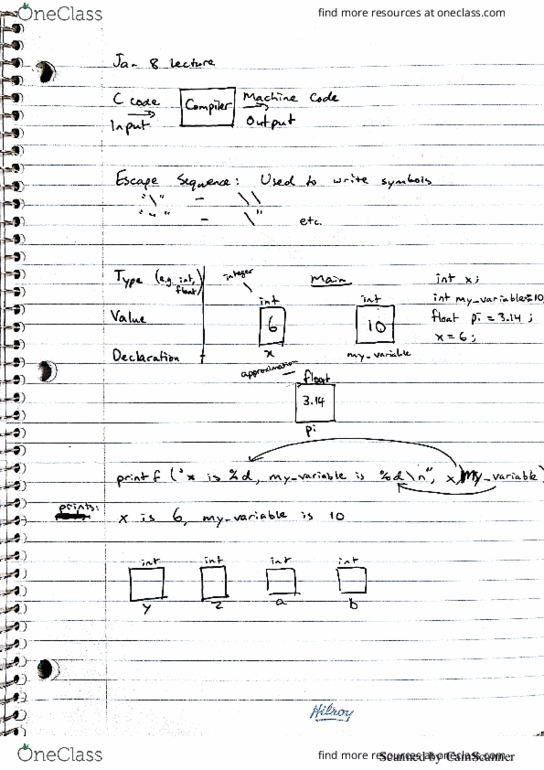 OneClass
find more resources at oneclass.com
Jan 8 lecture
C code Compiler Machine Code
Input Output
Escape Sequence: Used to write symbols
"\" - \\
""" - \" etc.
Type (e.g. int, float) integer Main int x;
int int int my_variable=10
Value 6 10 float pi = 3.14;
x = 6;
Declaration x my_variable
approximation float
3.14
pi
printf ("x is %d, my_variable is %d\n", x, my_variable)
prints:
x is 6, my_variable is 10
int int int int
y z a b
Hilroy
OneClass
find more resources at oneclass.com
Scanned by CamScanner